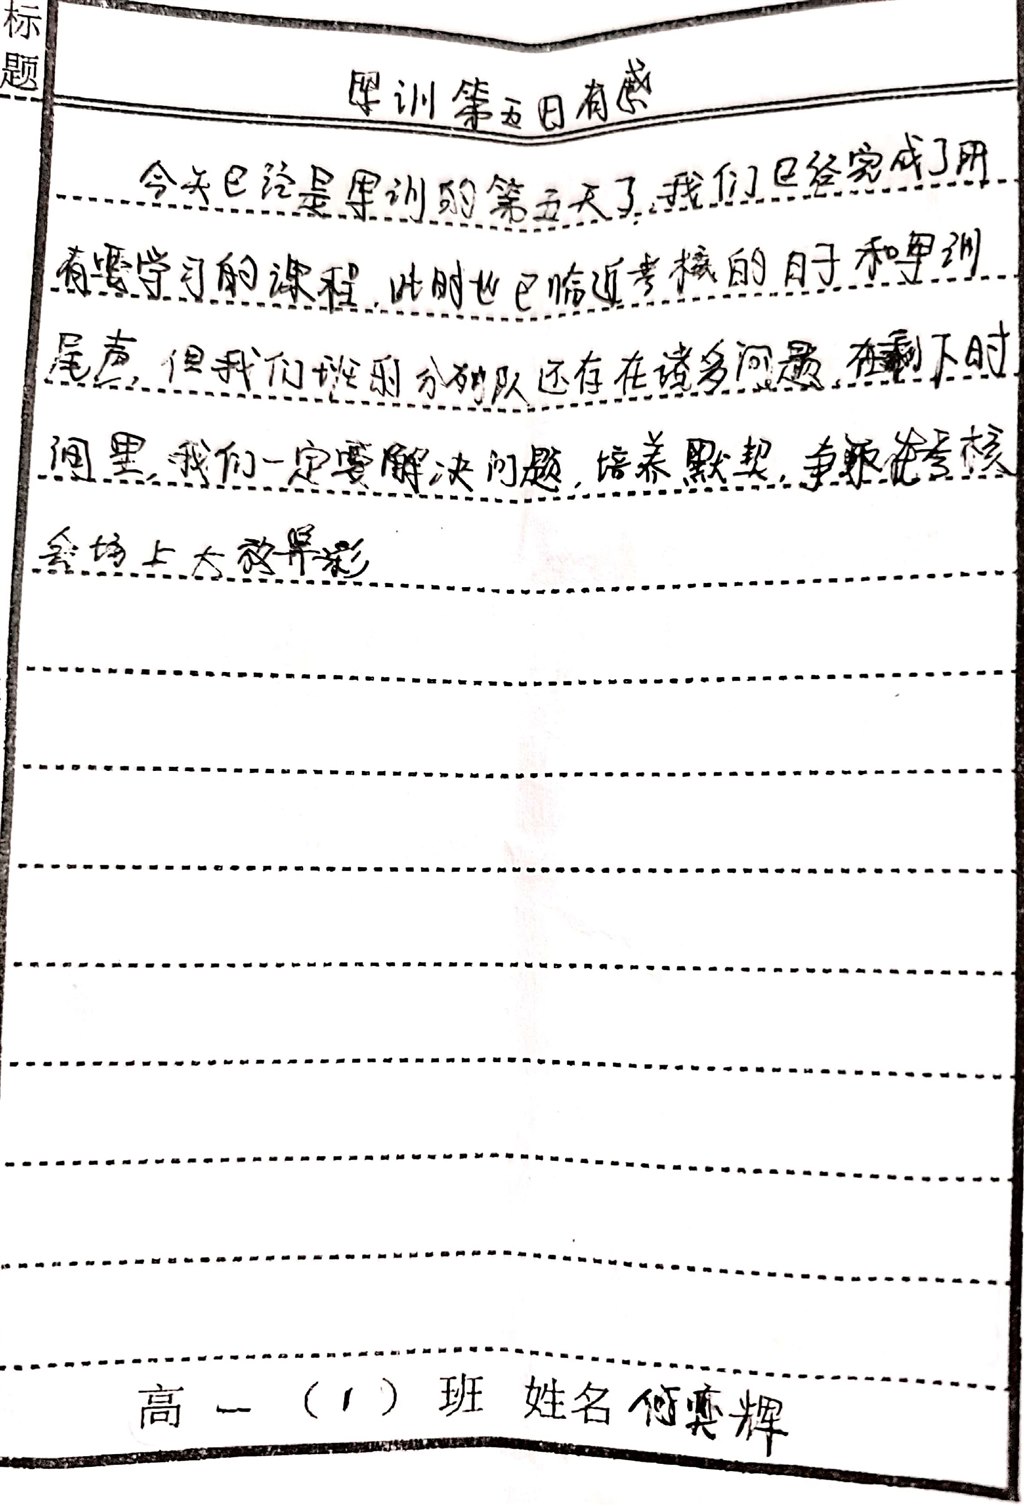 标题
军训第五日有感
今天已经是军训的第五天了，我们已经完成了所
有要学习的课程，此时也已临近考核的日子和军训
尾声，但我们班的分列队还存在诸多问题，在剩下时
间里，我们一定要解决问题，培养默契，争取在考核
会场上大放异彩
高一（1）班 姓名何奕辉